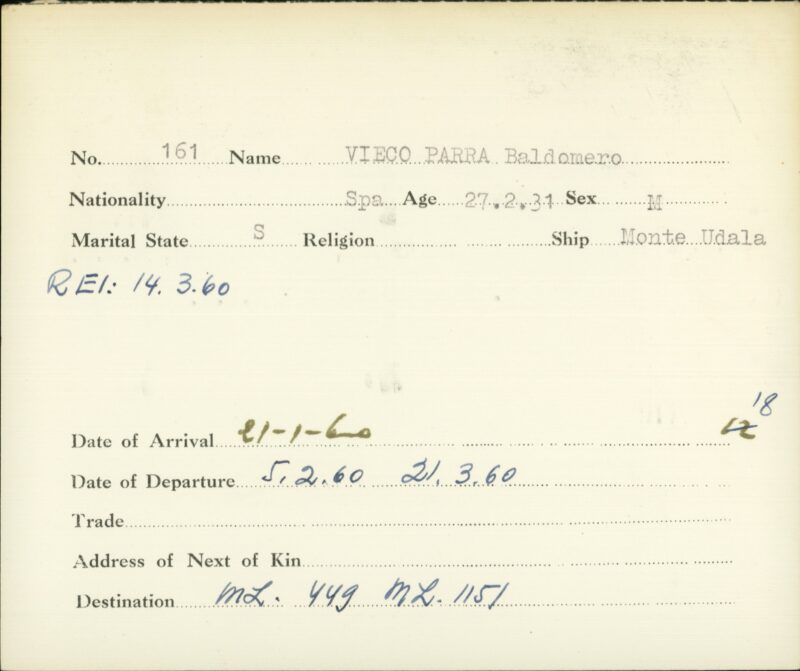 No. 161 Name VIECO PARRA Baldomero
Nationality Spa Age 27.2.31 Sex M
Marital State S Religion Ship Monte Udala
REI: 14.3.60
18
Date of Arrival 21-1-60 12
Date of Departure 5.2.60 21.3.60
Trade
Address of Next of Kin
Destination ML. 449 ML. 1151